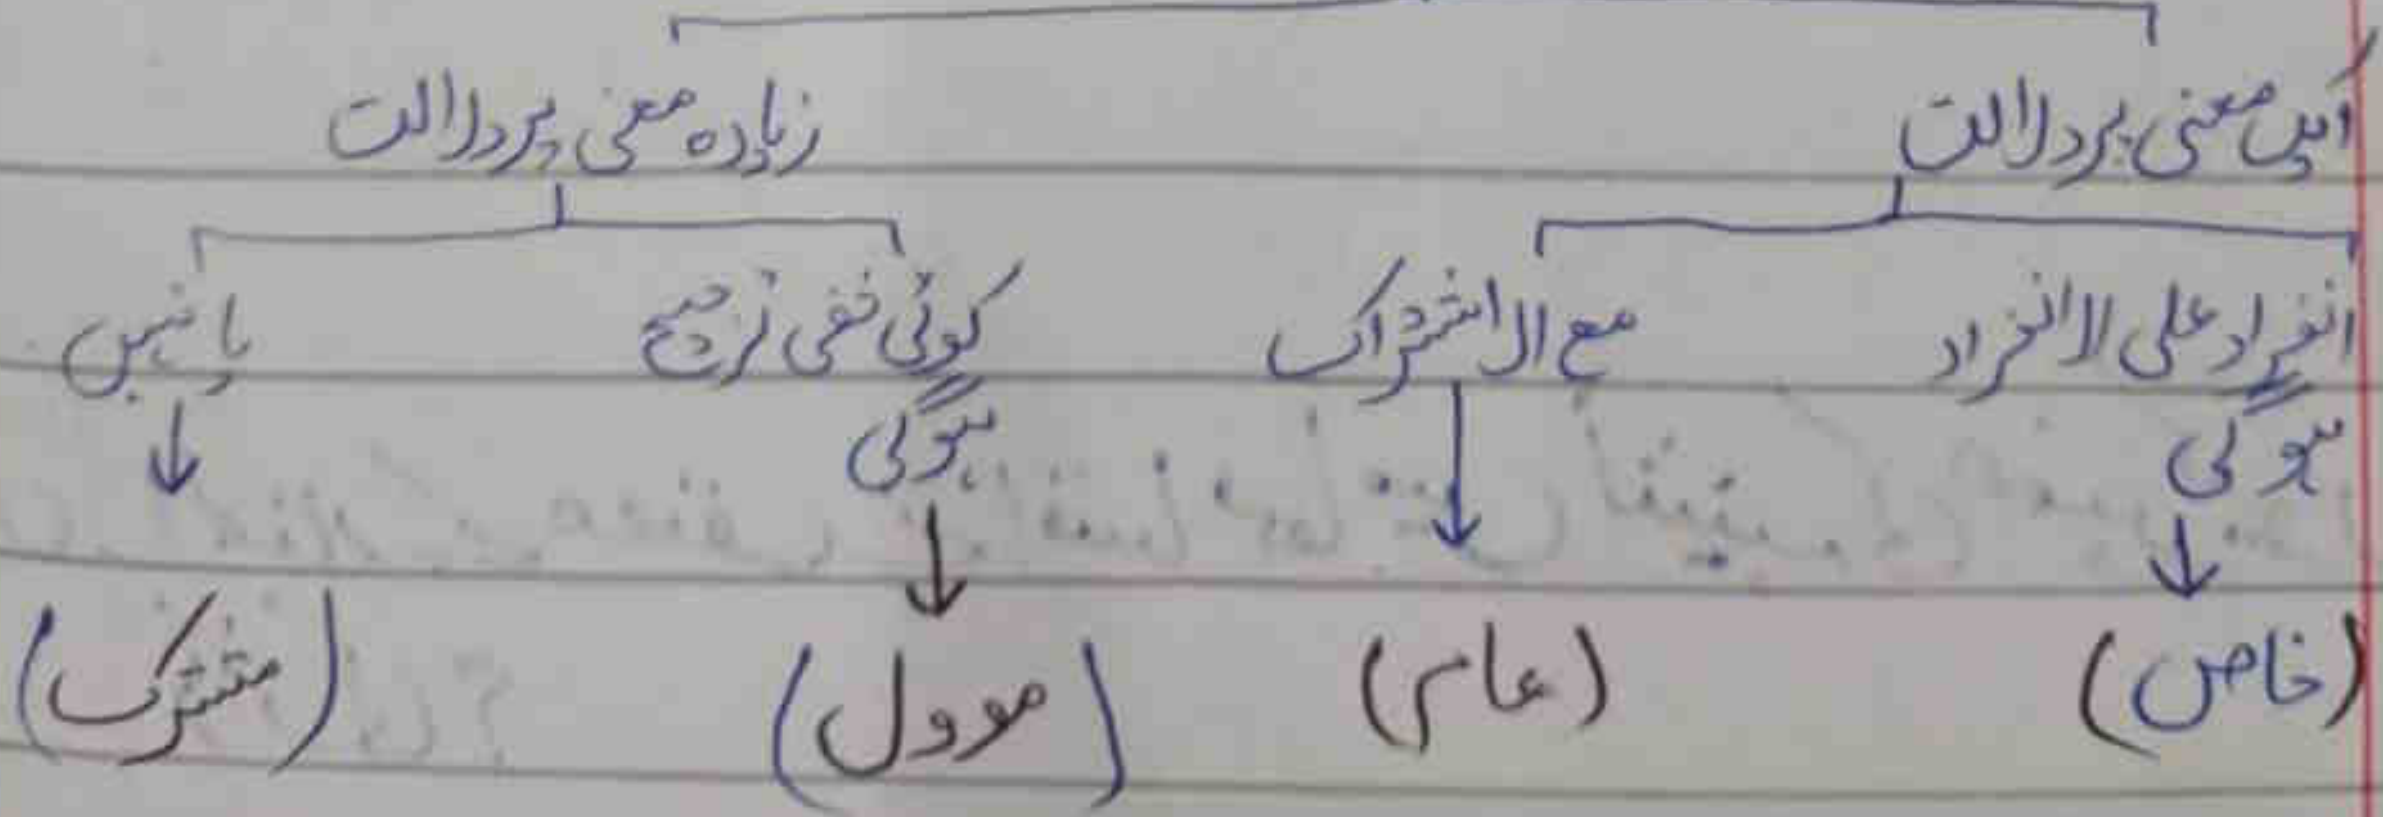 ایک معنی پر دلالت زیادہ معنی پر دلالت
انفراد علی الانفراد مع الاشتراک کوئی نفی ترجیح یا نہیں
ہوگی ہوگی
(خاص) (عام) (موول) (مشترک)